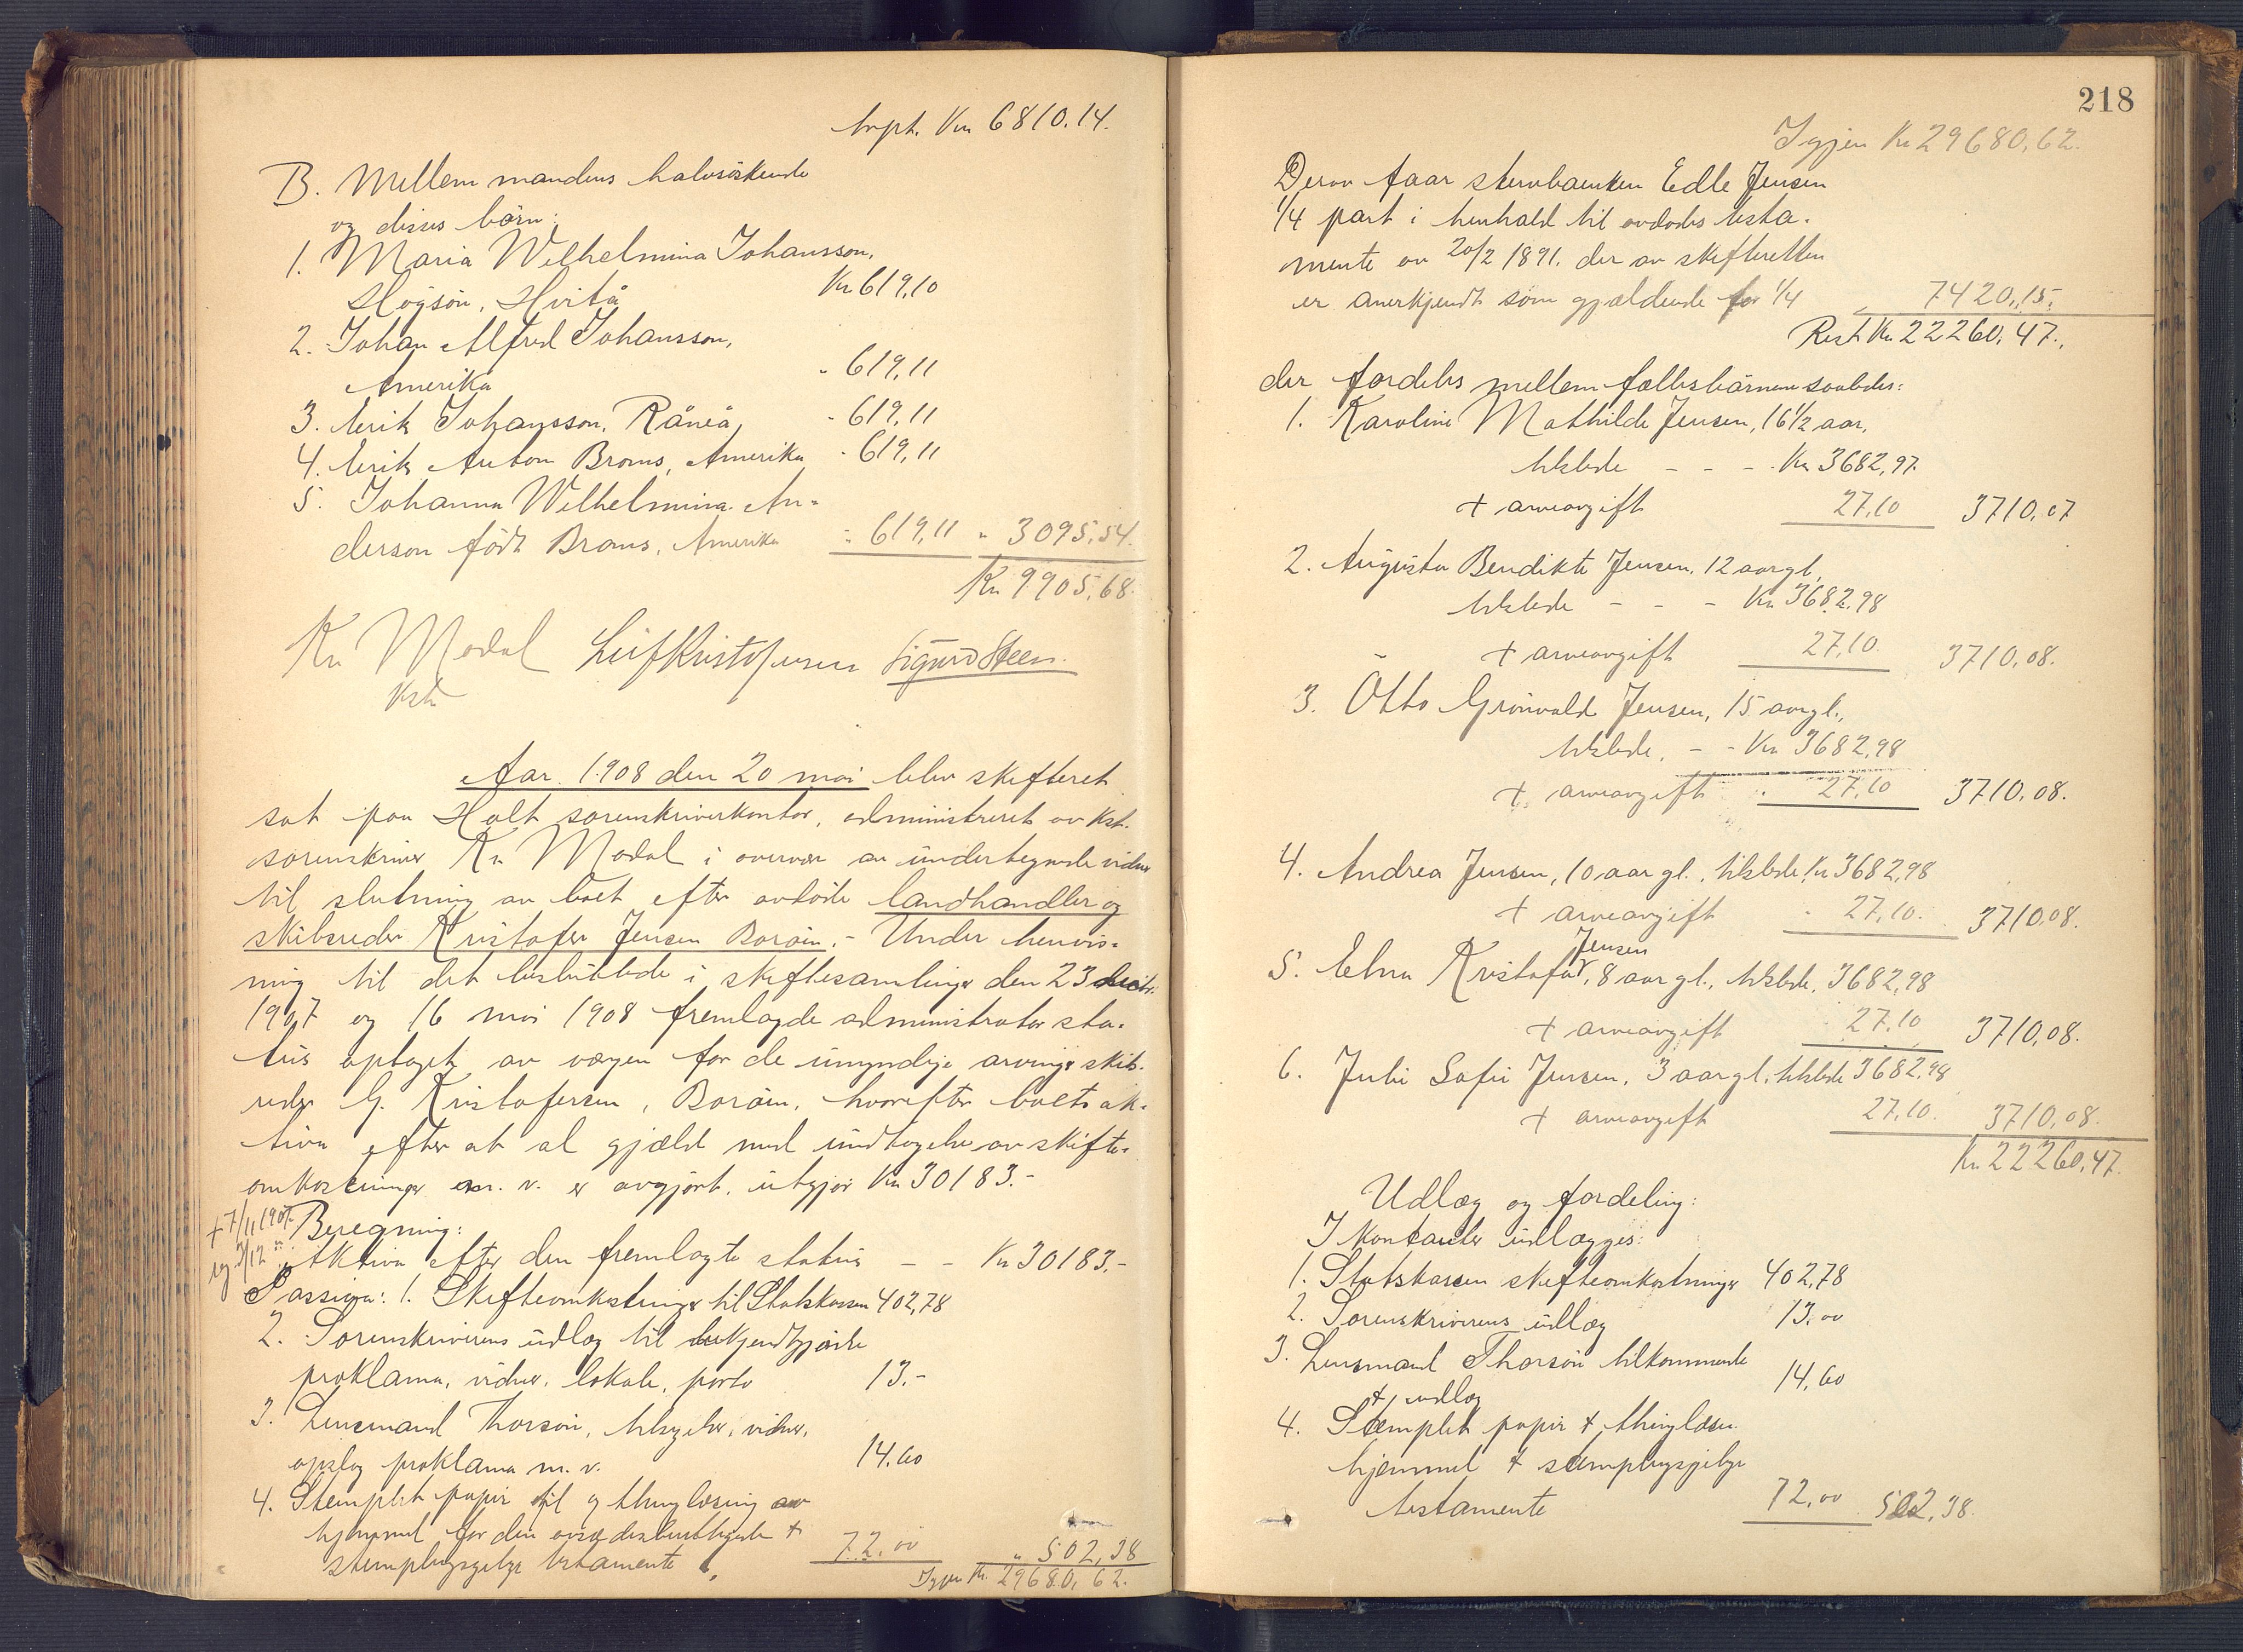 Kr 6810.14.
B. Mellem mandens halvsöskende
og disses börn:
1. Maria Wilhelmina Johansson,
Högsön, Hvitå Kr 619,10
2. Johan Alfred Johansson,
Amerika " 619,11
3. Erik Johansson, Råneå, " 619,11
4. Erik Anton Broms, Amerika " 619,11
5. Johanna Wilhelmina An-
derson född Broms, Amerika " 619,11 " 3095,54.
Kr 9905,68.
Kn Modal Leif Kristofersen Sigurd Steen.
Kst
Aar 1908 den 20 mai blev skifteret
sat paa Holt sorenskriverkontor, administreret av kst.
sorenskriver Kn Modal i overvær av undertegnede vidner
til slutning av boet efter avdöde landhandler og
skibsreder Kristofer Jensen Boröin. - Under henvis-
ning til det besluttede i skiftesamlinger den 23 decbr.
1907 og 16 mai 1908 fremlagde administrator sta-
tus optaget av værgen for de umyndige arvinger skibs-
reder G. Kristofersen, Boröin, hvorefter boets ak-
tiva efter at al gjæld med undtagelse av skifte-
omkostninger m. v. er avgjort, utgjör Kr 30183.-
+ 7/11 1907 Beregning:
og 3/12 " Aktiva efter den fremlagte status - - Kr 30183.-
Passiva: 1. Skifteomkostninger til Statskassen 402,78
2. Sorenskriverens udlæg til bekjendtgjörelse
proklama, vidner, lokale, porto 13.-
3. Lensmand Thorsön, tilsigelser, vidner,
opslag proklama m. v. 14.60
4. Stemplet papir til og thinglæsing av
hjemmel for den +
stemplingsgebyr testamente 72.00 " 502,38
Igjen Kr. 29680,62.
218
Igjen Kr 29680,62.
Derav faar stervboenken Edle Jensen
1/4 part i henhold til avdödes testa-
mente av 20/2 1891, der av skifteretten
er anerkjendt som gjældende for 1/4 7420,15.
Rest Kr 22260,47.
der fordeles mellem fællesbörnene saaledes:
1. Karoline Mathilde Jensen, 16 1/2 aar,
tilslede - - - Kr 3682,97.
+ arveavgift 27,10 3710,07
2. Augusta Bendikte Jensen, 12 aar gl.,
tilslede - - - Kr 3682,98
+ arveavgift 27,10. 3710,08.
3. Otto Grönvald Jensen, 15 aar gl.,
tilslede. - - Kr 3682,98
+ arveavgift " 27,10 3710,08.
4. Andrea Jensen, 10 aar gl., tilslede Kr 3682,98
+ arveavgift " 27,10. 3710,08.
Jensen
5. Elna Kristofa, 8 aar gl., tilslede, 3682,98
+ arveavgift " 27,10 3710,08.
6. Julie Sofie Jensen, 3 aar gl., tilslede 3682,98
+ arveavgift 27,10. 3710,08.
Kr. 22260,47.
Udlæg og fordeling:
I kontanter udlægges:
1. Statskassen skifteomkostninger 402,78
2. Sorenskriverens udlæg 13,00
3. Lensmand Thorsön tilkommende
+ udlæg 14,60
4. Stemplet papir + thinglæsn.
hjemmel + stemplingsgebyr
testamente 72,00 502,38.